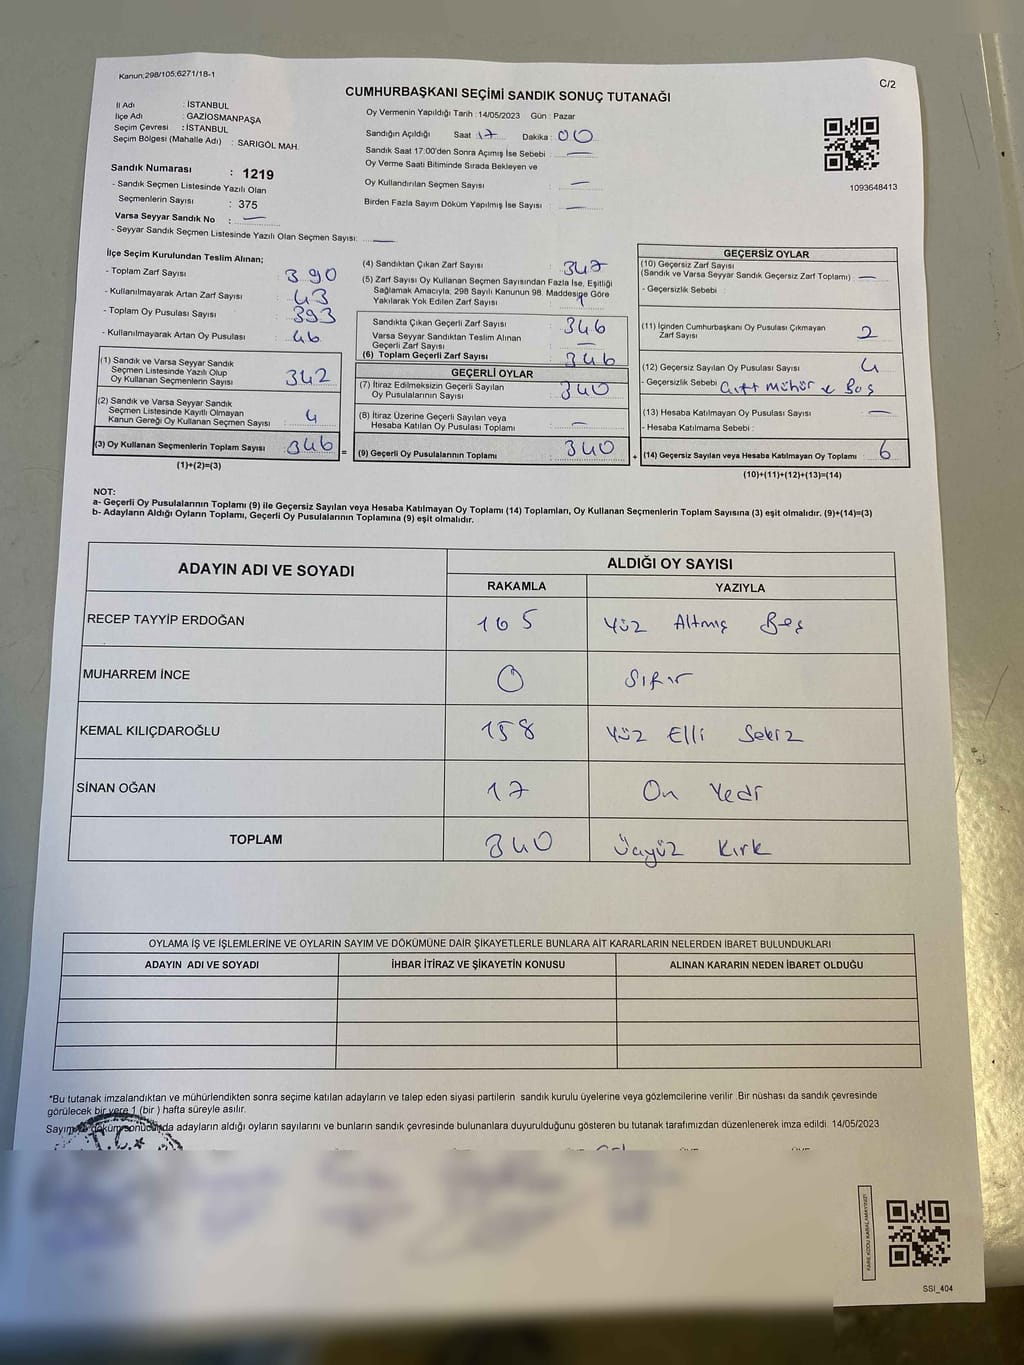 Kanun;298/105;6271/18-1
C/2
CUMHURBAŞKANI SEÇİMİ SANDIK SONUÇ TUTANAĞI
İl Adı : İSTANBUL
İlçe Adı : GAZİOSMANPAŞA
Seçim Çevresi : İSTANBUL
Seçim Bölgesi (Mahalle Adı) : SARIGÖL MAH.
Oy Vermenin Yapıldığı Tarih :14/05/2023 Gün : Pazar
Sandığın Açıldığı Saat 17 Dakika : 00
Sandık Saat 17:00'den Sonra Açımış İse Sebebi : —
Oy Verme Saati Bitiminde Sırada Bekleyen ve
Oy Kullandırılan Seçmen Sayısı : —
Birden Fazla Sayım Döküm Yapılmış İse Sayısı : —
1093648413
Sandık Numarası : 1219
- Sandık Seçmen Listesinde Yazılı Olan
Seçmenlerin Sayısı : 375
Varsa Seyyar Sandık No : —
- Seyyar Sandık Seçmen Listesinde Yazılı Olan Seçmen Sayısı: —
İlçe Seçim Kurulundan Teslim Alınan;
- Toplam Zarf Sayısı 390
- Kullanılmayarak Artan Zarf Sayısı 43
- Toplam Oy Pusulası Sayısı 393
- Kullanılmayarak Artan Oy Pusulası 46
(1) Sandık ve Varsa Seyyar Sandık
Seçmen Listesinde Yazılı Olup
Oy Kullanan Seçmenlerin Sayısı 342
(2) Sandık ve Varsa Seyyar Sandık
Seçmen Listesinde Kayıtlı Olmayan
Kanun Gereği Oy Kullanan Seçmen Sayısı 4
(3) Oy Kullanan Seçmenlerin Toplam Sayısı 346 =
(1)+(2)=(3)
(4) Sandıktan Çıkan Zarf Sayısı : 347
(5) Zarf Sayısı Oy Kullanan Seçmen Sayısından Fazla İse, Eşitliği
Sağlamak Amacıyla, 298 Sayılı Kanunun 98. Maddesine Göre
Yakılarak Yok Edilen Zarf Sayısı 1
Sandıkta Çıkan Geçerli Zarf Sayısı 346
Varsa Seyyar Sandıktan Teslim Alınan
Geçerli Zarf Sayısı —
(6) Toplam Geçerli Zarf Sayısı 346
GEÇERLİ OYLAR
(7) İtiraz Edilmeksizin Geçerli Sayılan
Oy Pusulalarının Sayısı 340
(8) İtiraz Üzerine Geçerli Sayılan veya
Hesaba Katılan Oy Pusulası Toplamı —
(9) Geçerli Oy Pusulalarının Toplamı 340 +
GEÇERSİZ OYLAR
(10) Geçersiz Zarf Sayısı
(Sandık ve Varsa Seyyar Sandık Geçersiz Zarf Toplamı) —
- Geçersizlik Sebebi :
(11) İçinden Cumhurbaşkanı Oy Pusulası Çıkmayan
Zarf Sayısı 2
(12) Geçersiz Sayılan Oy Pusulası Sayısı 4
- Geçersizlik Sebebi Çift mühür ve Boş
(13) Hesaba Katılmayan Oy Pusulası Sayısı —
- Hesaba Katılmama Sebebi :
(14) Geçersiz Sayılan veya Hesaba Katılmayan Oy Toplamı 6
(10)+(11)+(12)+(13)=(14)
NOT:
a- Geçerli Oy Pusulalarının Toplamı (9) ile Geçersiz Sayılan veya Hesaba Katılmayan Oy Toplamı (14) Toplamları, Oy Kullanan Seçmenlerin Toplam Sayısına (3) eşit olmalıdır. (9)+(14)=(3)
b- Adayların Aldığı Oyların Toplamı, Geçerli Oy Pusulalarının Toplamına (9) eşit olmalıdır.
ADAYIN ADI VE SOYADI
ALDIĞI OY SAYISI
RAKAMLA YAZIYLA
RECEP TAYYİP ERDOĞAN 165 Yüz Altmış Beş
MUHARREM İNCE 0 Sıfır
KEMAL KILIÇDAROĞLU 158 Yüz Elli Sekiz
SİNAN OĞAN 17 On Yedi
TOPLAM 340 Üçyüz Kırk
OYLAMA İŞ VE İŞLEMLERİNE VE OYLARIN SAYIM VE DÖKÜMÜNE DAİR ŞİKAYETLERLE BUNLARA AİT KARARLARIN NELERDEN İBARET BULUNDUKLARI
ADAYIN ADI VE SOYADI İHBAR İTİRAZ VE ŞİKAYETİN KONUSU ALINAN KARARIN NEDEN İBARET OLDUĞU
*Bu tutanak imzalandıktan ve mühürlendikten sonra seçime katılan adayların ve talep eden siyasi partilerin sandık kurulu üyelerine veya gözlemcilerine verilir .Bir nüshası da sandık çevresinde
görülecek bir yere 1 (bir ) hafta süreyle asılır.
Sayım ve döküm sonucunda adayların aldığı oyların sayılarını ve bunların sandık çevresinde bulunanlara duyurulduğunu gösteren bu tutanak tarafımızdan düzenlenerek imza edildi. 14/05/2023
T.C.
SSI_404